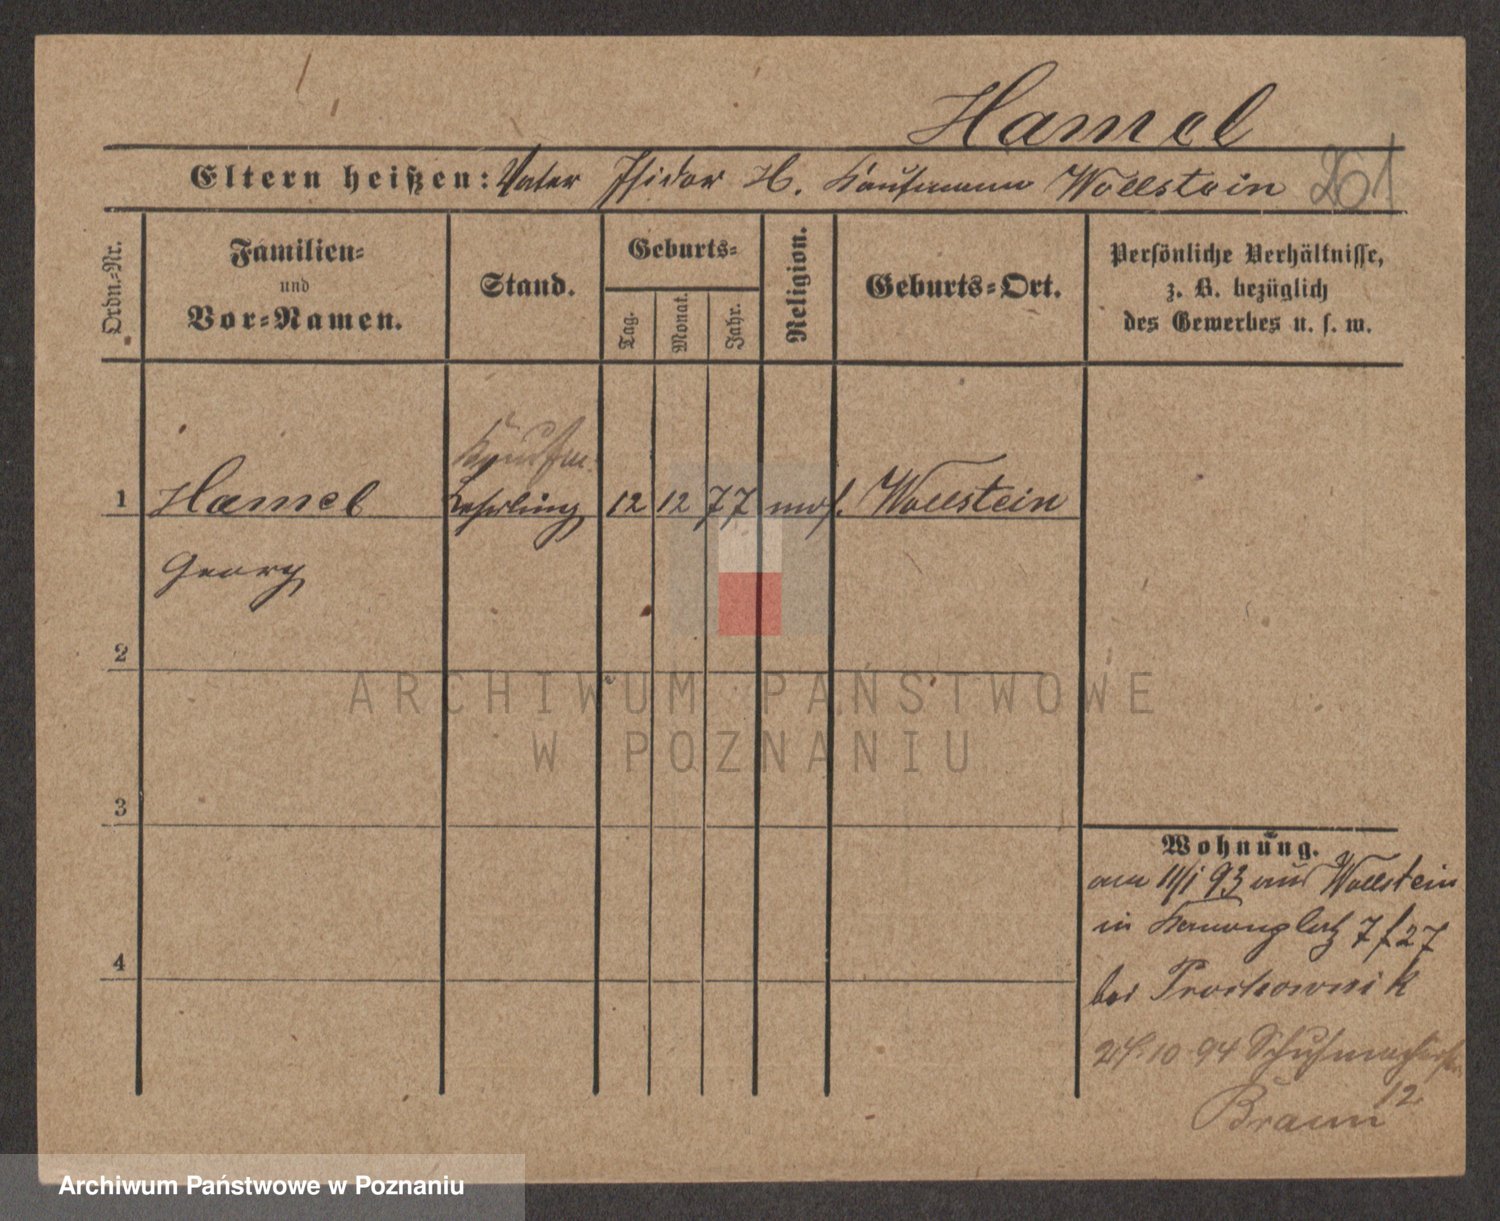 Hamel
Eltern heißen: Vater Isidor H. Kaufmann Wollstein 261
Ordn.-Nr.
Familien- und Vor-Namen.
Stand.
Geburts-
Tag.
Monat.
Jahr.
Religion.
Geburts-Ort.
Persönliche Verhältnisse,
z. B. bezüglich
des Gewerbes u. s. w.
Kaufm.
1 Hamel Lehrling 12 12 77 mos. Wollstein
Georg
2
ARCHIWUM PAŃSTWOWE
W POZNANIU
3
Wohnung.
am 11/1 93 aus Wollstein
in Kanonenplatz 7 27
bei
4
10 94 Schuhmacherstr
12
Braun
Archiwum Państwowe w Poznaniu